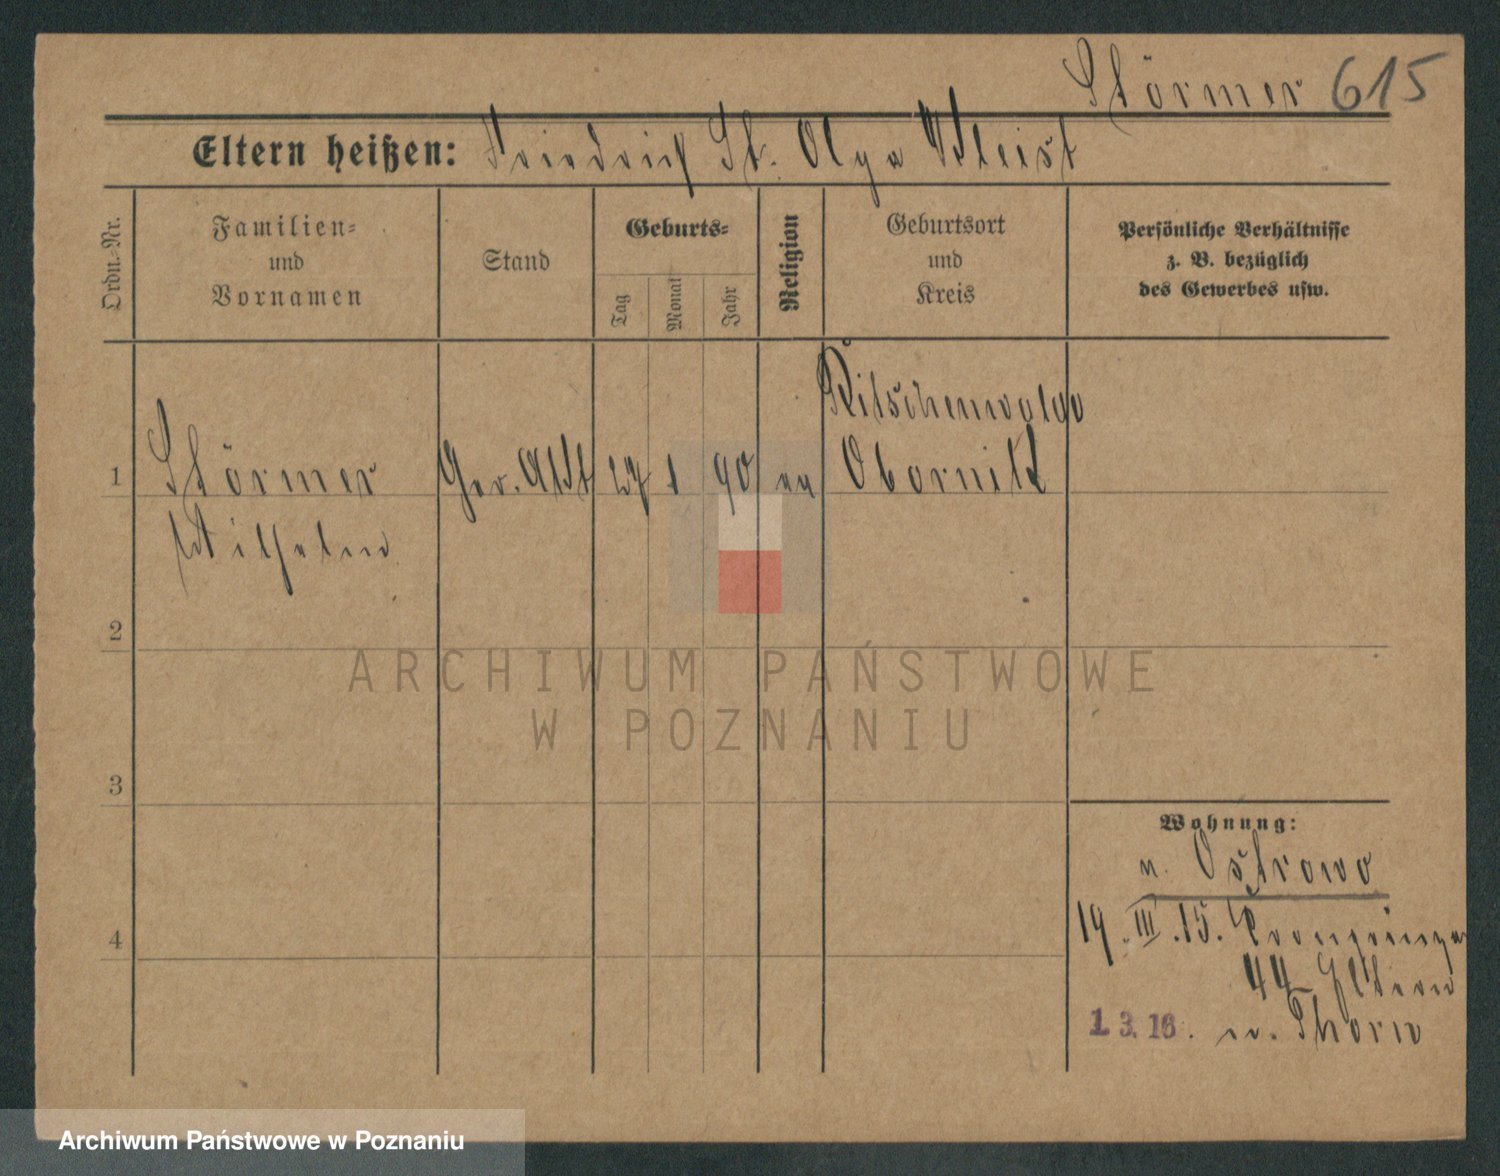 Störmer 615
Eltern heißen: Friedrich St. Olga Kleist
Ordn.-Nr.
Familien-
und
Vornamen
Stand
Geburts-
Tag
Monat
Jahr
Religion
Geburtsort
und
Kreis
Persönliche Verhältnisse
z. B. bezüglich
des Gewerbes usw.
Ritschenwalde
1 Störmer Ger. 27 1 90 Obornik
Wilhelm
2
3
4
Wohnung:
n. Ostrowo
19. III. 15. Kronprinzen
44 Eltern
1.3.16. n. Thorn
ARCHIWUM PAŃSTWOWE
W POZNANIU
Archiwum Państwowe w Poznaniu